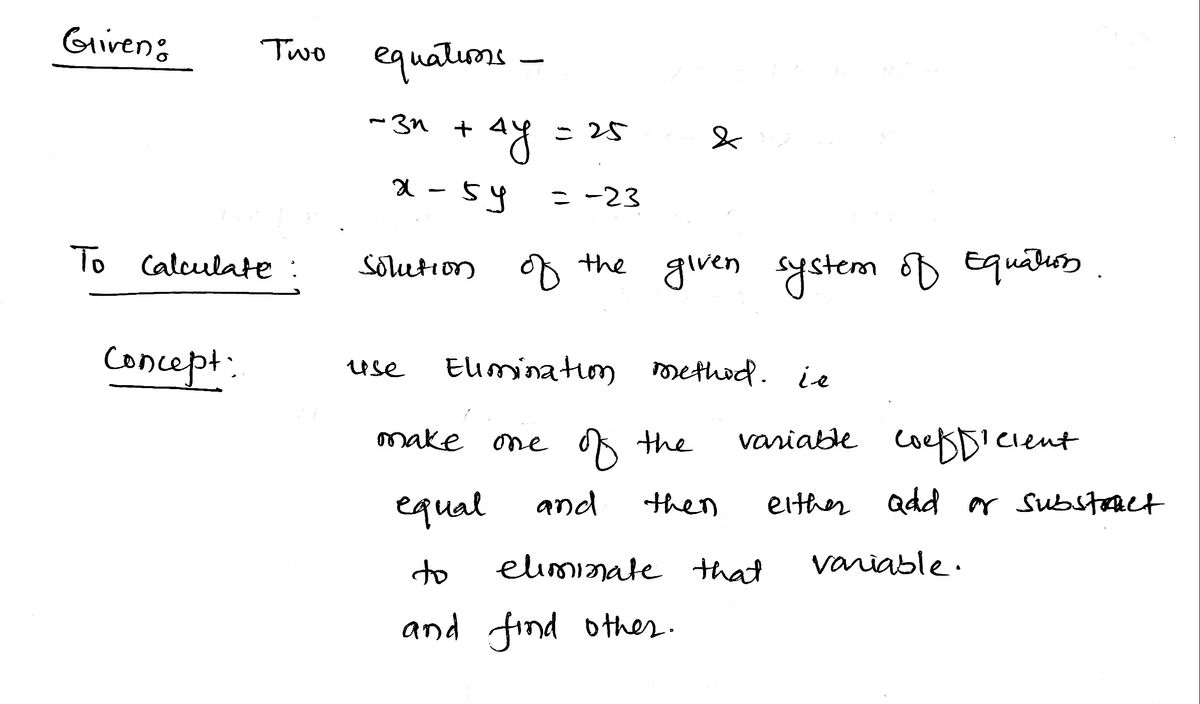 Given: Two equations –
-3x + 4y = 25 &
x - 5y = -23
To calculate : solution of the given system of Equation.
Concept: use Elimination method. i.e
make one of the variable coefficient
equal and then either add or substract
to eliminate that variable.
and find other.